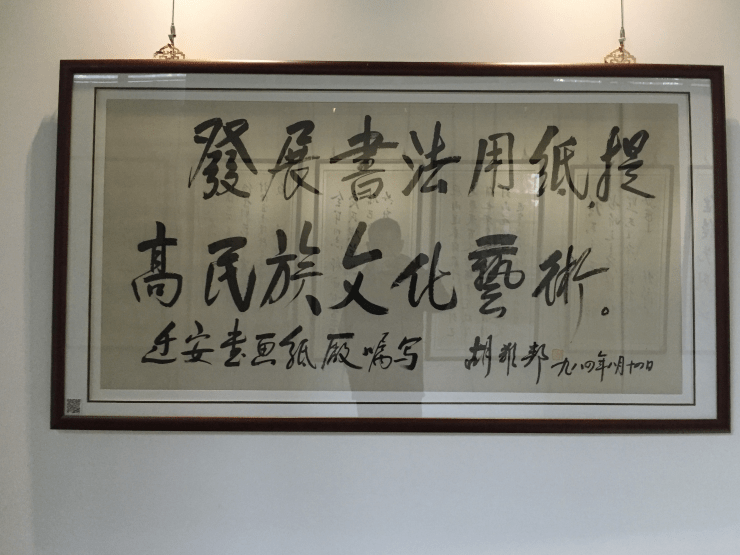 發展書法用紙,提
高民族文化藝術。
迁安書画紙厰嘱写 胡耀邦 一九八四年八月十四日